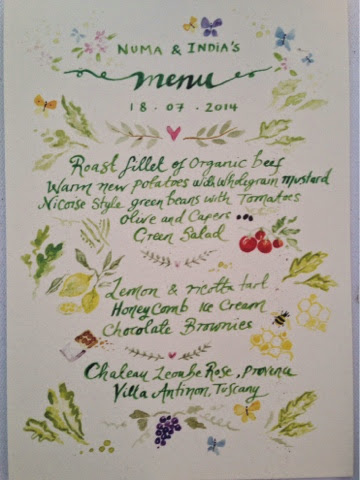 NUMA & INDIA'S
menu
18 · 07 · 2014
Roast fillet of Organic beef
Warm new potatoes with Wholegrain Mustard
Nicoise Style green beans with Tomatoes
Olive and Capers
Green Salad
Lemon & ricotta tart
Honeycomb Ice Cream
Chocolate Brownies
Chateau Leoube Rose, provence
Villa Antinori, Tuscany